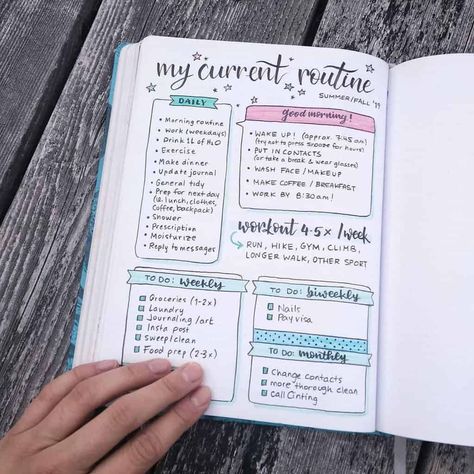 my current routine
SUMMER/FALL '19
DAILY
• Morning routine
• Work (weekdays)
• Drink 1L of H2O
• Exercise
• Make dinner
• Update journal
• General tidy
• Prep for next day
(i.e. lunch, clothes,
coffee, backpack)
• Shower
• Prescription
• Moisturize
• Reply to messages
good morning!
• WAKE UP! (approx. 7:45 am)
(try not to press snooze for hours)
• PUT IN CONTACTS
(or take a break & wear glasses)
• WASH FACE/MAKEUP
• MAKE COFFEE/BREAKFAST
• WORK BY 8:30am!
workout 4-5x/week
RUN, HIKE, GYM, CLIMB,
LONGER WALK, OTHER SPORT
TO DO: weekly
Groceries (1-2x)
Laundry
Journaling/art
Insta post
Sweep/clean
Food prep (2-3x)
TO DO: biweekly
Nails
Pay visa
TO DO: monthly
Change contacts
more thorough clean
Call Cinting